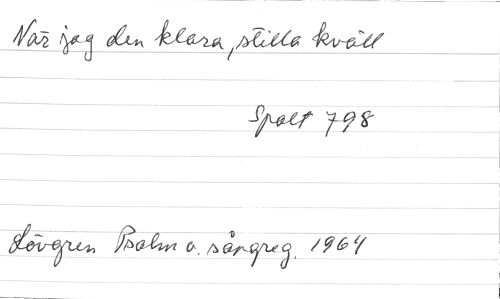 När jag den klara, stilla kväll
Spalt 798
Lövgren Psalm o. sångreg. 1964